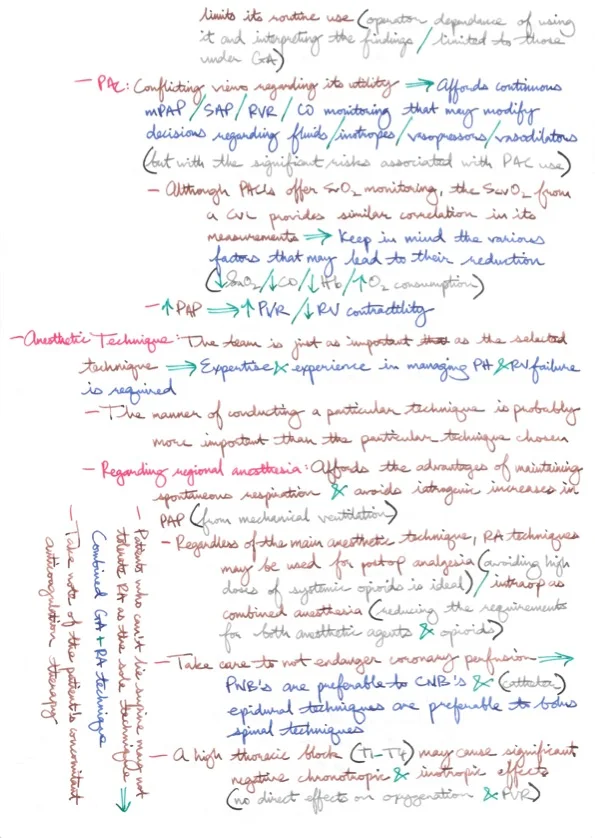 limits its routine use (operator dependance of using
it and interpreting the findings / limited to those
under GA)
- PAC: Conflicting views regarding its utility → Affords continuous
mPAP/SAP/RVR/CO monitoring that may modify
decisions regarding fluids/inotropes/vasopressors/vasodilators
(but with the significant risks associated with PAC use)
- Although PACs offer SvO₂ monitoring, the ScvO₂ from
a CVL provides similar correlation in its
measurements → Keep in mind the various
factors that may lead to their reduction
(↓SaO₂/↓CO/↓Hb/↑O₂ consumption)
- ↑PAP → ↑PVR/↓RV contractility
- Anesthetic Technique: The team is just as important as the selected
technique → Expertise & experience in managing PH & RV failure
is required
- The manner of conducting a particular technique is probably
more important than the particular technique chosen
- Regarding regional anesthesia: Affords the advantages of maintaining
spontaneous respiration & avoids iatrogenic increases in
PAP (from mechanical ventilation)
- Regardless of the main anesthetic technique, RA techniques
may be used for postop analgesia (avoiding high
doses of systemic opioid is ideal) / intraop as
combined anesthesia (reducing the requirements
for both anesthetic agents & opioids)
- Take care to not endanger coronary perfusion →
PNB's are preferable to CNB's & (catheter)
epidural techniques are preferable to bolus
spinal techniques
- A high thoracic block (T1-T4) may cause significant
negative chronotropic & inotropic effects
(no direct effects on oxygenation & PVR)
- Patients who can't lie supine may not
tolerate RA as the sole technique →
Combined GA + RA technique
- Take note of the patient's concomitant
anticoagulation therapy